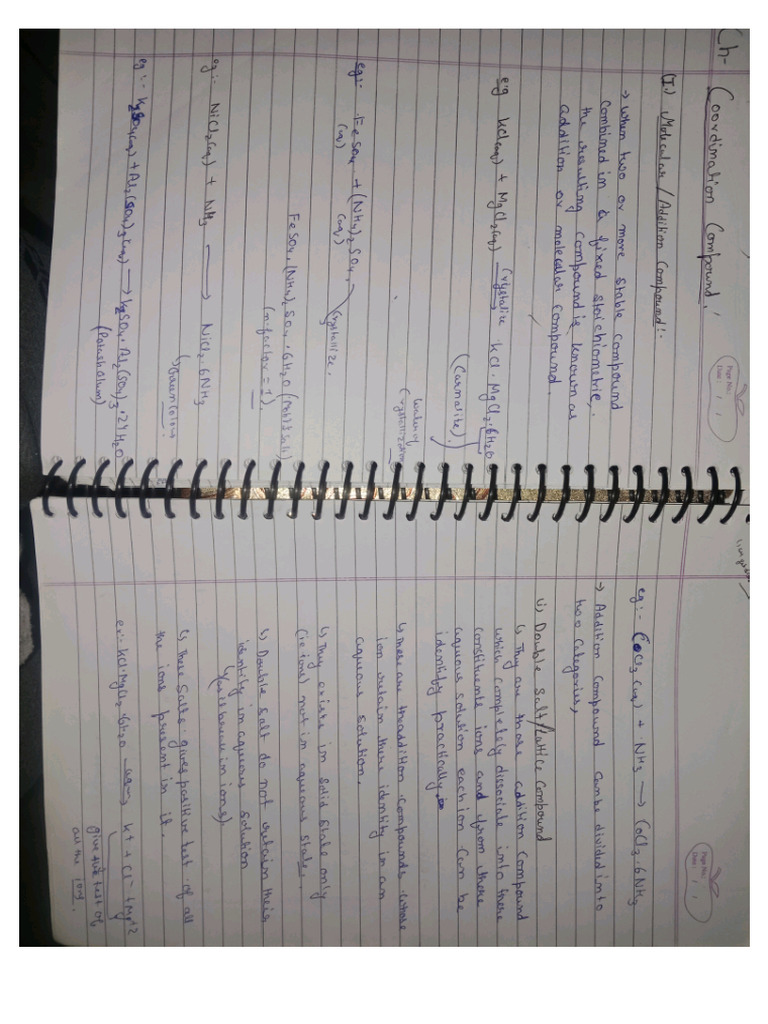 Ch- Coordination Compound,
Page No.:
Date: / /
(I) Molecular/Addition Compound:-
→ When two or more stable compound
combined in a fixed stoichiometric,
the resulting compound is known as
addition or molecular compound.
eg KCl(aq) + MgCl2(aq) Crystalize KCl·MgCl2·6H2O
(Carnalite).
Water of
Crystallization
eg:- FeSO4 + (NH4)2SO4, Crystallize,
(aq) (aq)
FeSO4·(NH4)2SO4·6H2O (Mohr's Salt)
(n-factor = 1).
eg:- NiCl2(aq) + NH3 → NiCl2·6NH3
eg:- K2SO4(aq) + Al2(SO4)3(aq) → K2SO4·Al2(SO4)3·24H2O
(Potash Alum)
Page No.:
Date: / /
eg:- CoCl3(aq) + NH3 → CoCl3·6NH3
→ Addition Compound can be divided into
two categories,
(i) Double Salt/Lattice Compound
↳ They are those addition Compound
which completely dissociate into there
constituente ions and from there
aqueous solution each ion can be
identify practically.
↳ these are the addition compounds whose
ion retain there identity in an
aqueous solution.
↳ They exists in solid state only
(ie ions) not in aqueous state.
↳ Double salt do not retain their
identity in aqueous solution
(fully break in ions).
↳ These Salts gives positive test of all
the ions present in it.
ex:- KCl·MgCl2·6H2O aq→ K+ + Cl- + Mg+2
give +ve test of
all the ions